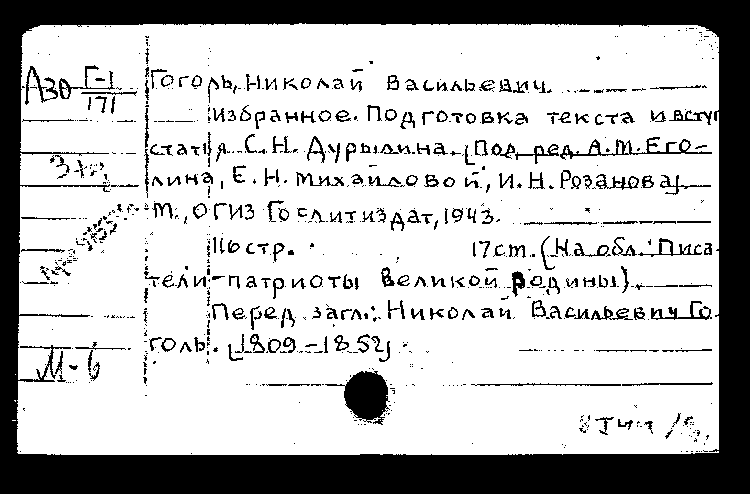 А30 Г-1
171
Гоголь, Николай Васильевич.
Избранное. Подготовка текста и вступ
статья С. Н. Дурылина. [Под ред. А. М. Его-
лина, Е. Н. Михайловой, И. Н. Розанова].
М., ОГИЗ Гослитиздат, 1943.
116 стр. 17 см. (На обл.: Писа-
тели-патриоты великой родины).
Перед загл.: Николай Васильевич Го-
голь. [1809-1852]
3
М-6